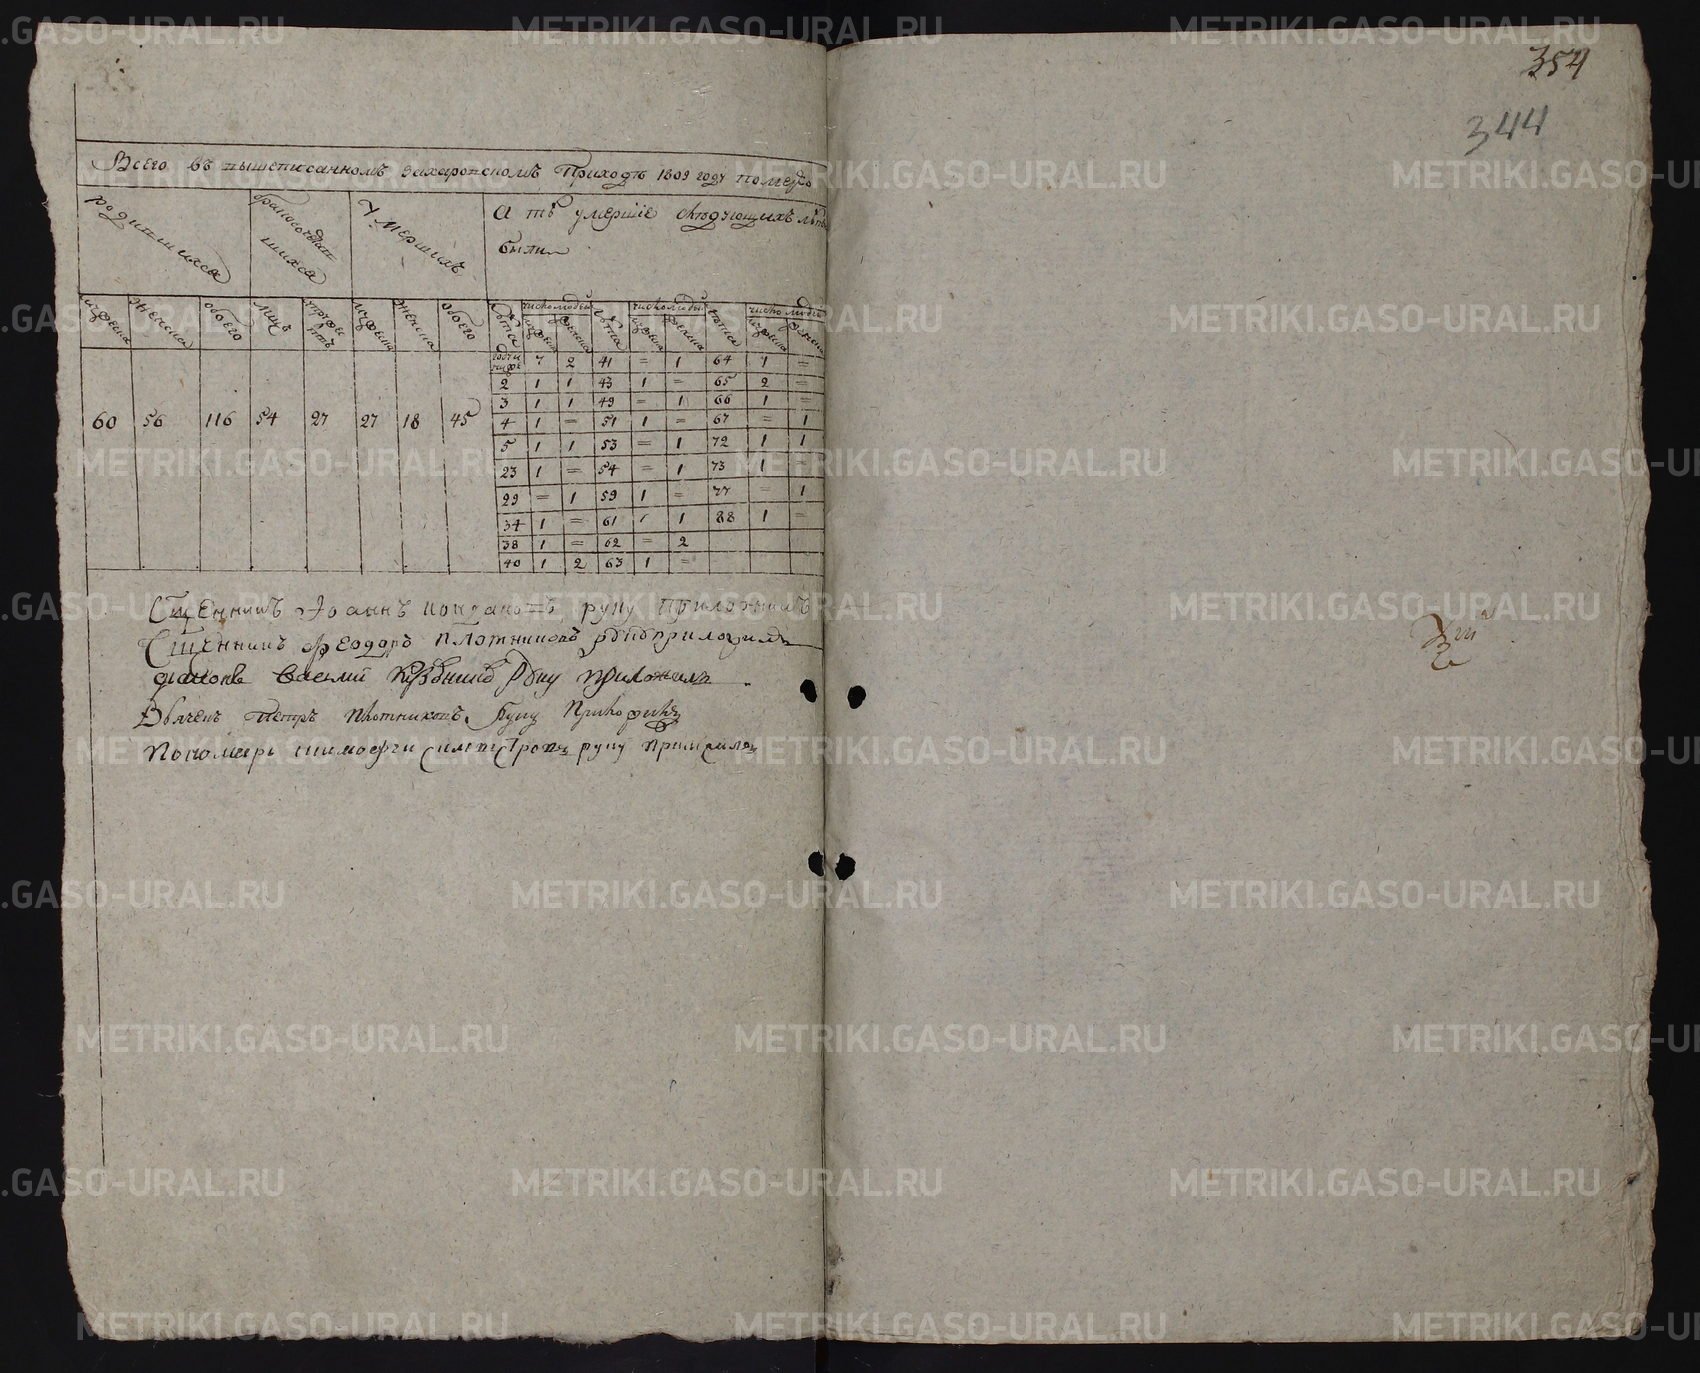 354
344
Всего въ вышеписанномъ захаровскомъ Приходѣ 1809 году
родившихся
бракосочетавшихся
Умершихъ
А тѣ умершіе слѣдующихъ лѣтъ
были
мужеска женска обоего лицъ мужеска женска обоего лѣта число людей лѣта число людей лѣта число людей
7 2 41 = 1 64 1 =
2 1 1 43 1 = 65 2 =
3 1 1 49 = 1 66 1 =
60 56 116 54 27 27 18 45 4 1 = 51 1 = 67 = 1
5 1 1 53 = 1 72 1 1
23 1 = 54 = 1 73 1 =
29 = 1 59 1 = 77 = 1
34 1 = 61 1 1 88 1 =
38 1 = 62 = 2
40 1 2 63 1 =
Сщенникъ Іоаннъ руку приложилъ
Сщенникъ Феодоръ Плотниковъ руку приложилъ
диаконъ Василий руку приложилъ
Дьячекъ Петръ Плотниковъ руку приложилъ
Пономарь руку приложилъ
METRIKI.GASO-URAL.RU